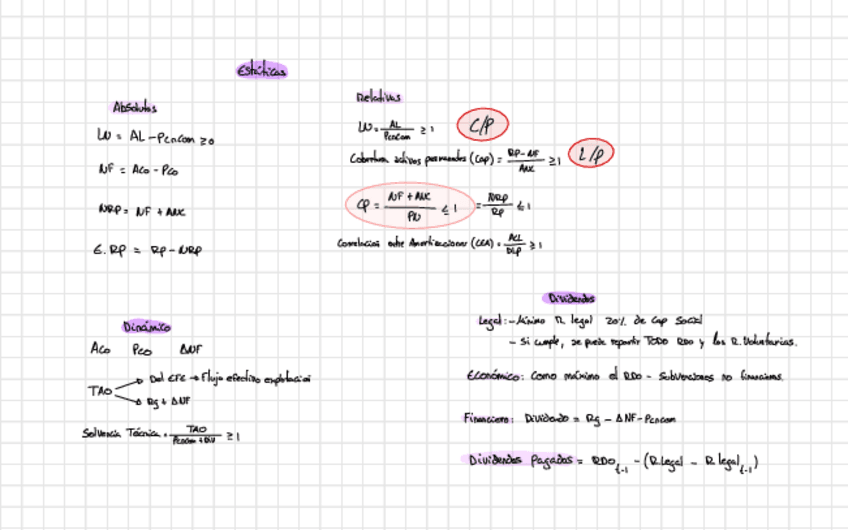 Estáticas
Absolutas
LW = AL - Pcncom ≥ 0
NF = Aco - Pco
NRP = NF + ANC
E. RP = RP - NRP
Relativas
LW = AL / Pcncom ≥ 1
C/P
Cobertura activos permanentes (Cap) = RP - NF / ANC ≥ 1
L/P
CP = NF + ANC / PN ≤ 1 = NRP / RP ≤ 1
Correlación entre Amortizaciones (CEA) = ACL / DLP ≥ 1
Dinámico
Aco Pco ΔNF
TAO
Del EFE → Flujo efectivo explotación
Rg + ΔNF
Solvencia Técnica = TAO / Pcncom + DIV ≥ 1
Dividendos
Legal: - Mínimo R legal 20% de Cap Social
- Si cumple, se puede repartir TODO RDO y las R. Voluntarias.
Económico: Como máximo el RDO - Subvenciones no financieras.
Financiero: Dividendo = Rg - ΔNF - Pcncom
Dividendos Pagados = RDO t-1 - (R legal - R legal t-1)